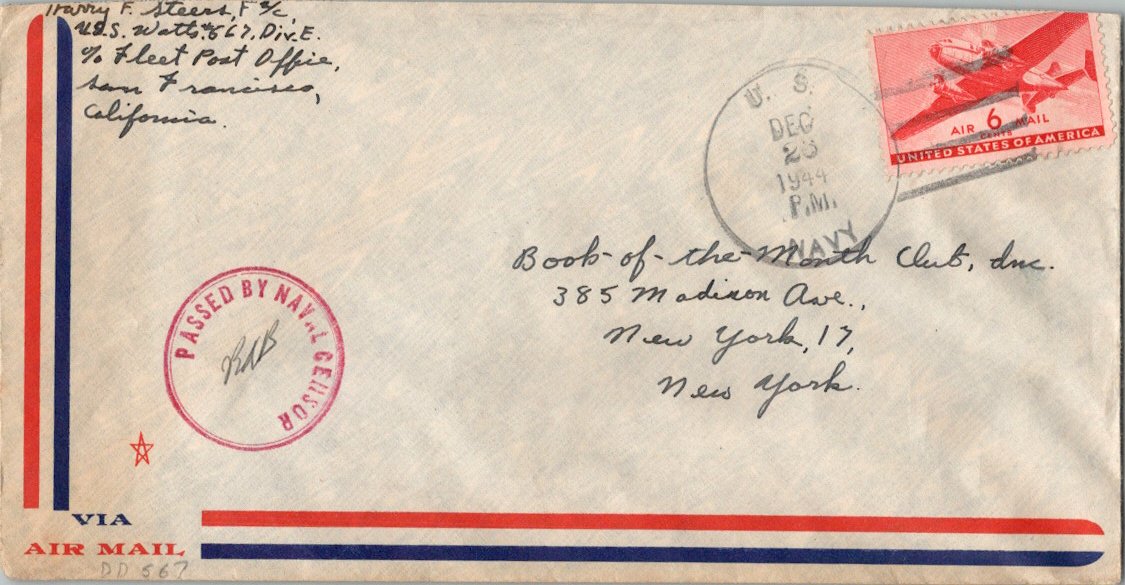 Harry F. Steers, F 2/c,
U.S.S. Watts #567, Div. E.
% Fleet Post Office,
San Francisco,
California.
U. S.
DEC
26
1944
P.M.
NAVY
AIR 6 MAIL
CENTS
UNITED STATES OF AMERICA
Book-of-the-Month Club, Inc.
385 Madison Ave.,
New York, 17,
New York.
PASSED BY NAVAL CENSOR
VIA
AIR MAIL
DD 567